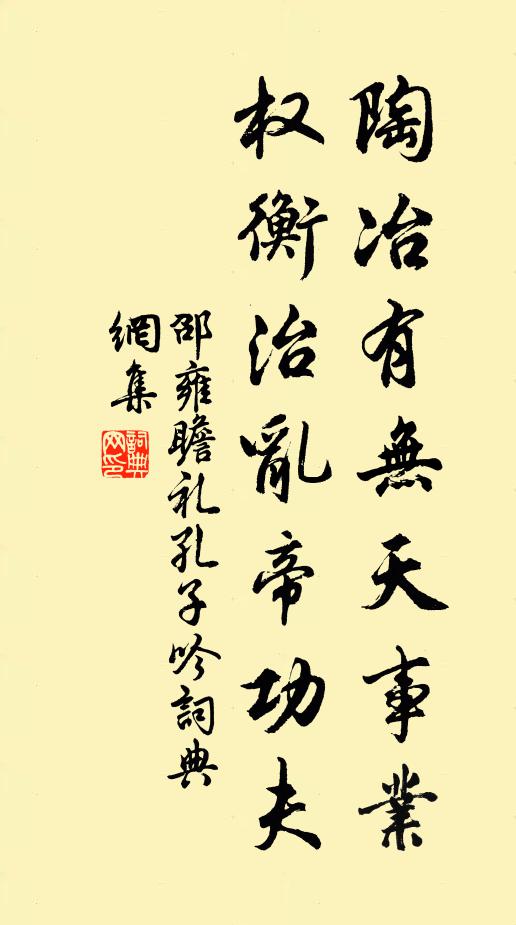 陶冶有無天事業
权衡治亂帝功夫
邵雍瞻礼孔子吟詞典
網集
詞典网印